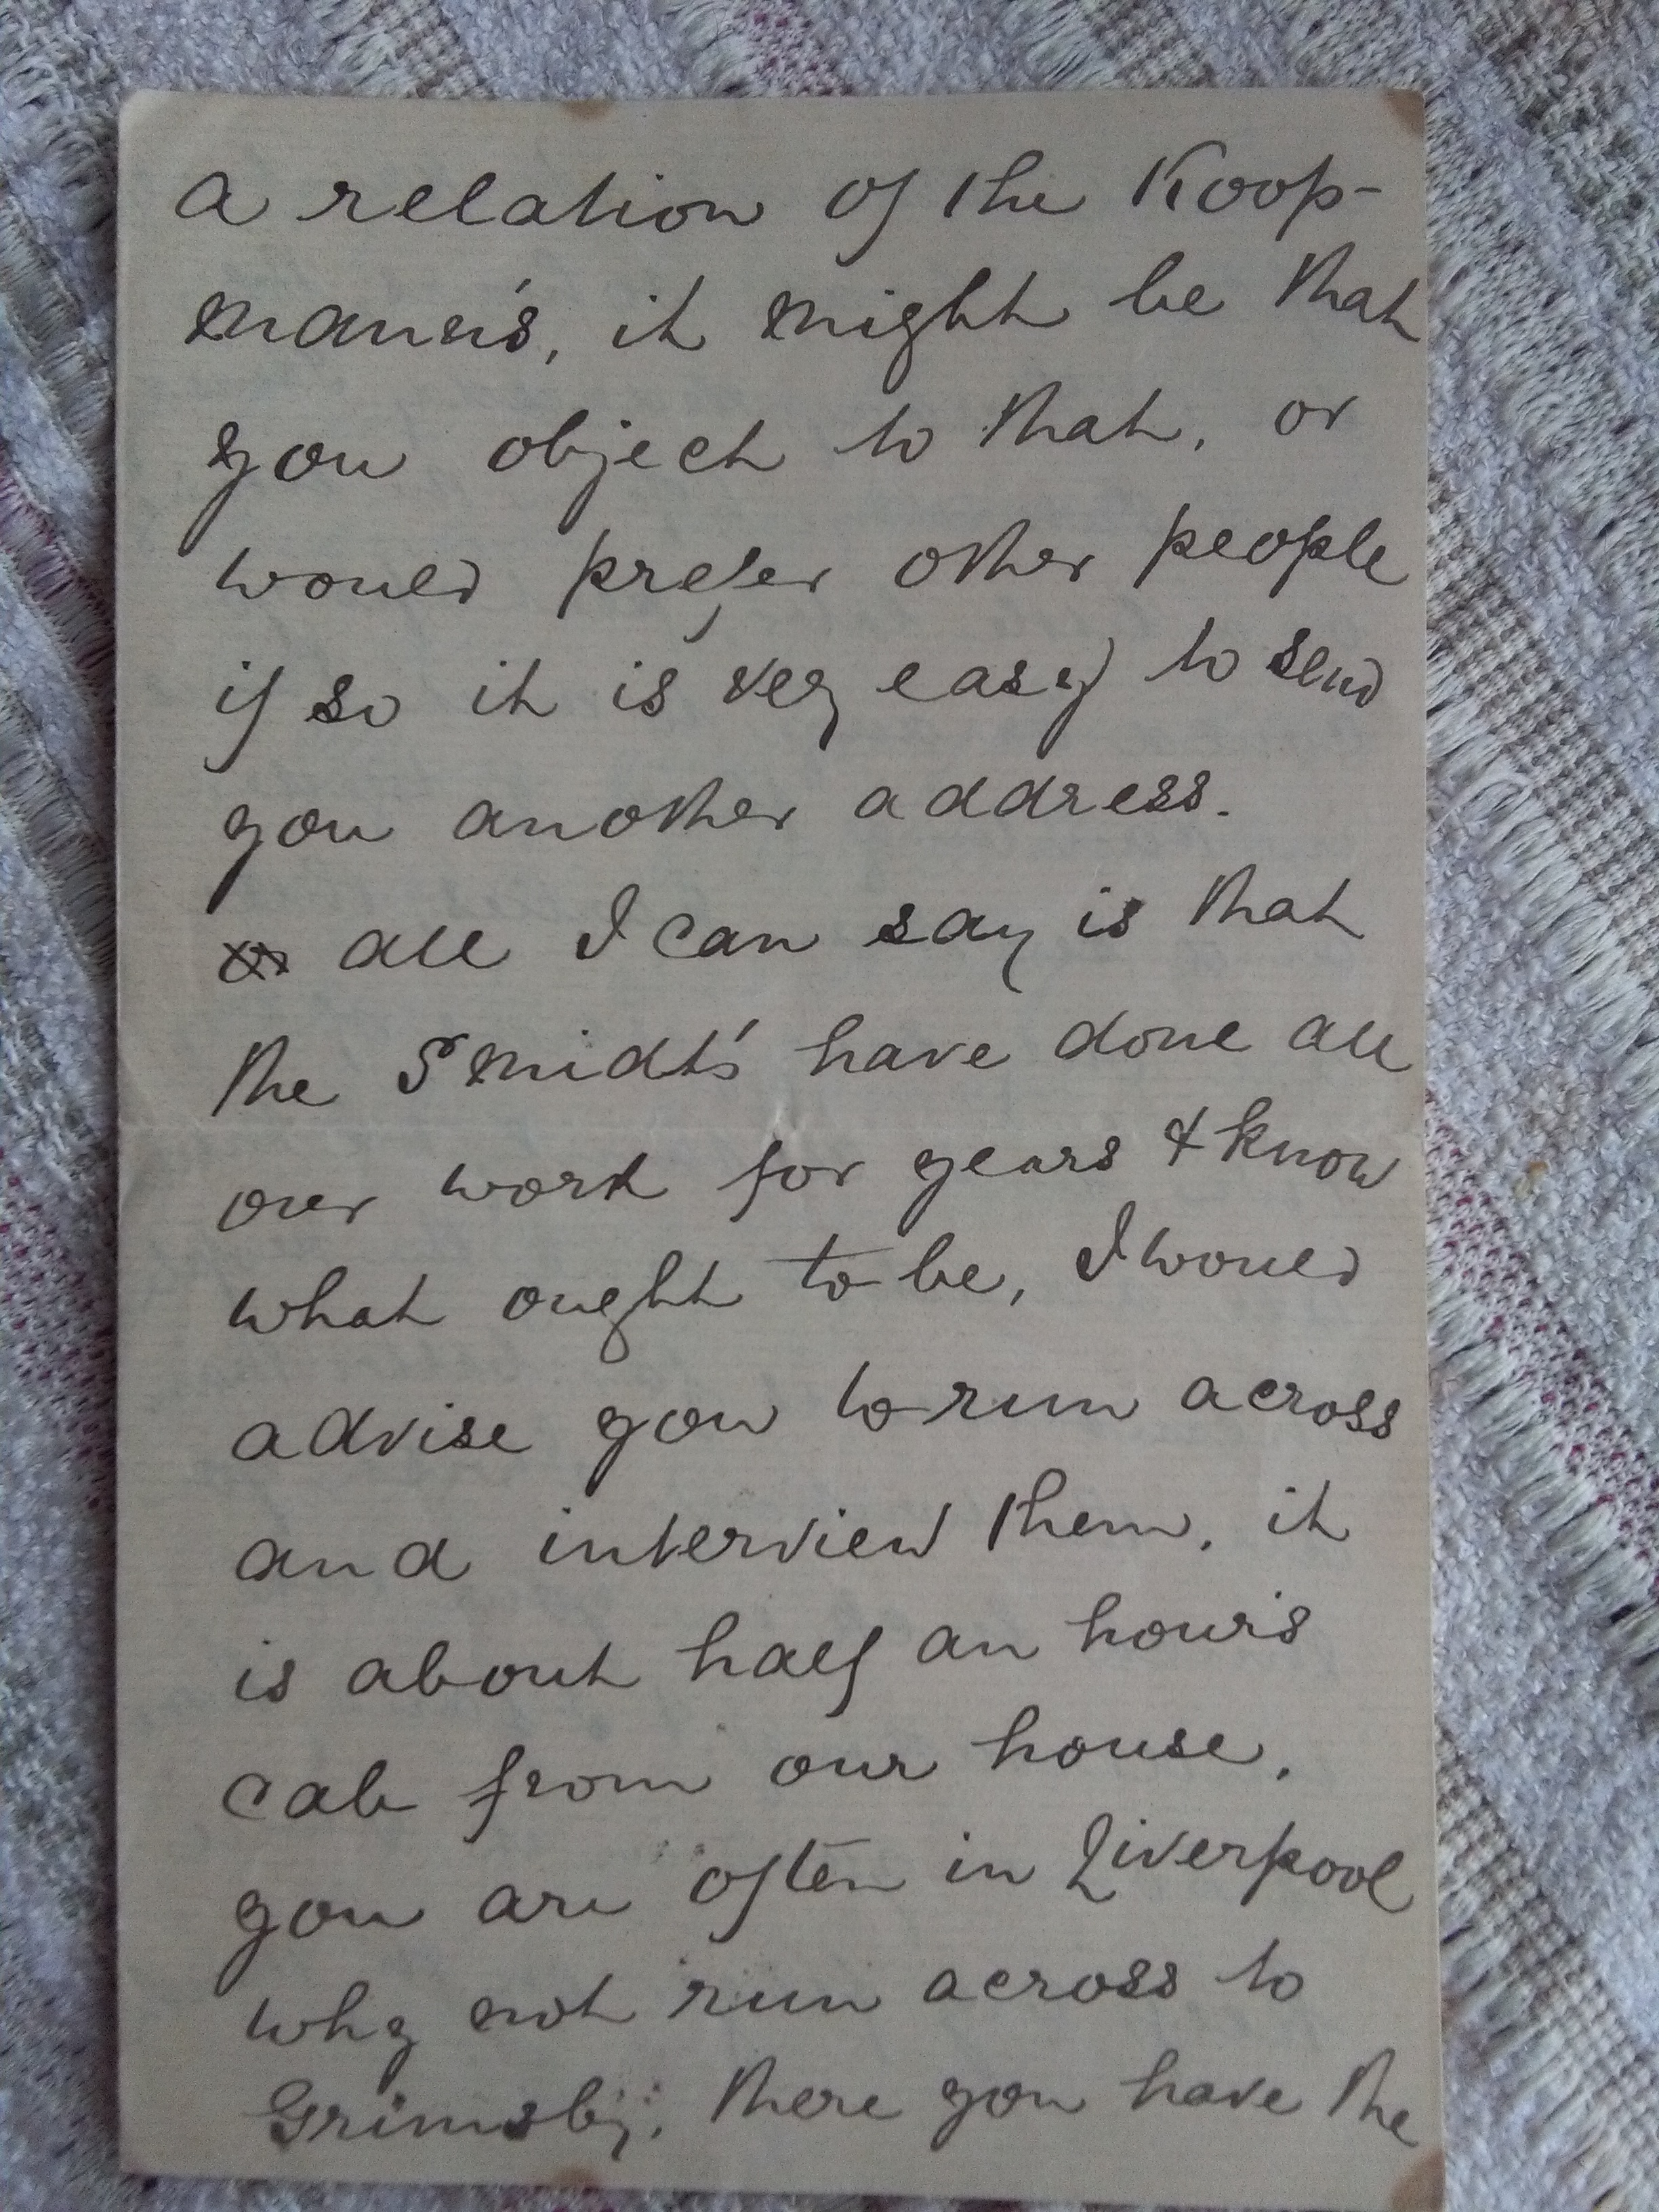 a relation of the Koop-
mann's, it might be that
you object to that, or
would prefer other people
if so it is very easy to send
you another address.
all I can say is that
the Smidt's have done all
over work for years & know
what ought to be, I would
advise you to run across
and interview them, it
is about half an hour's
cab from our house,
you are often in Liverpool
why not run across to
Grimsby, there you have the